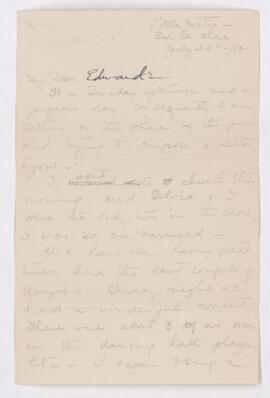 Little Metis -
July 24th - /10
My Dear Edwards
It is Sunday afternoon and a
gorgeous day, consequently I am
sitting on the shore by the pier
and trying to compose a letter
to you.
I went to church this
morning, and Silvia & I
were the only ones in the choir,
I was so embarrassed -
We have been having great
times here the last couple of
days - Friday night we
had a wonderful concert
There were about 8 of us over
in the dancing hall playing
etc - I began being a